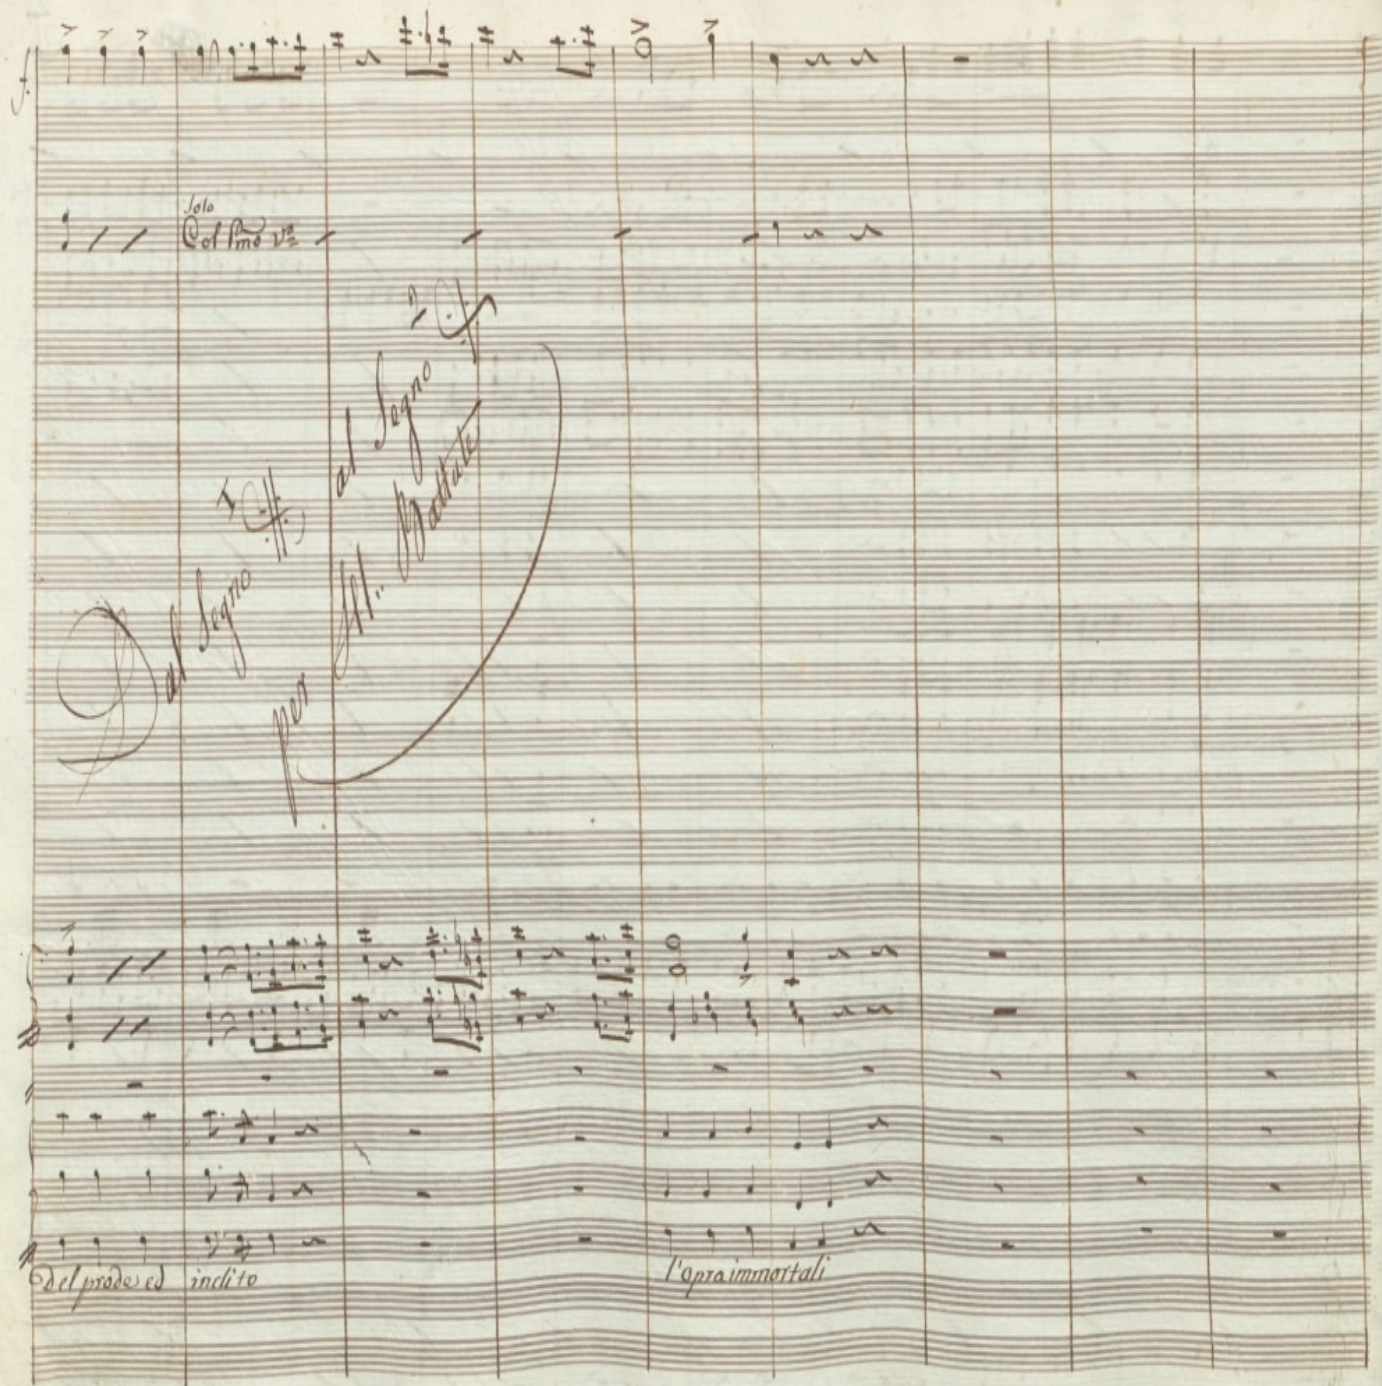 f.
Solo
Col Pmo Vo
2
Dal Segno I al Segno
per Battute
Del prode ed inclito l'opra immortali